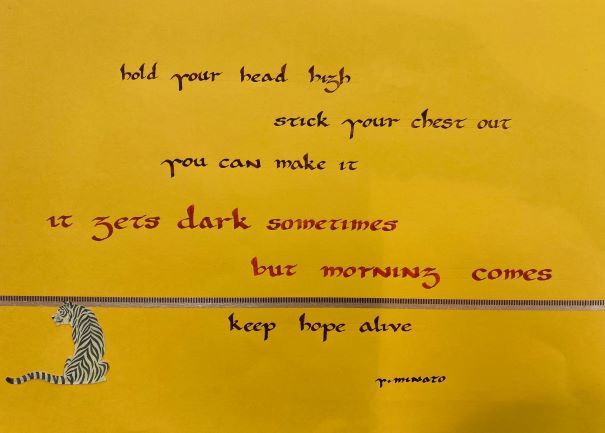 hold your head high
stick your chest out
you can make it
it gets dark sometimes
but morning comes
keep hope alive
y. minato